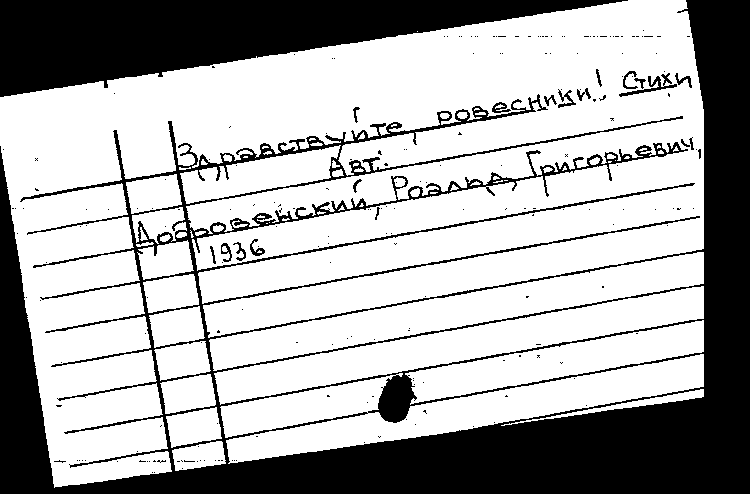 Здравствуйте, ровесники! Стихи
Авт:
Добровенский, Роальд Григорьевич,
1936